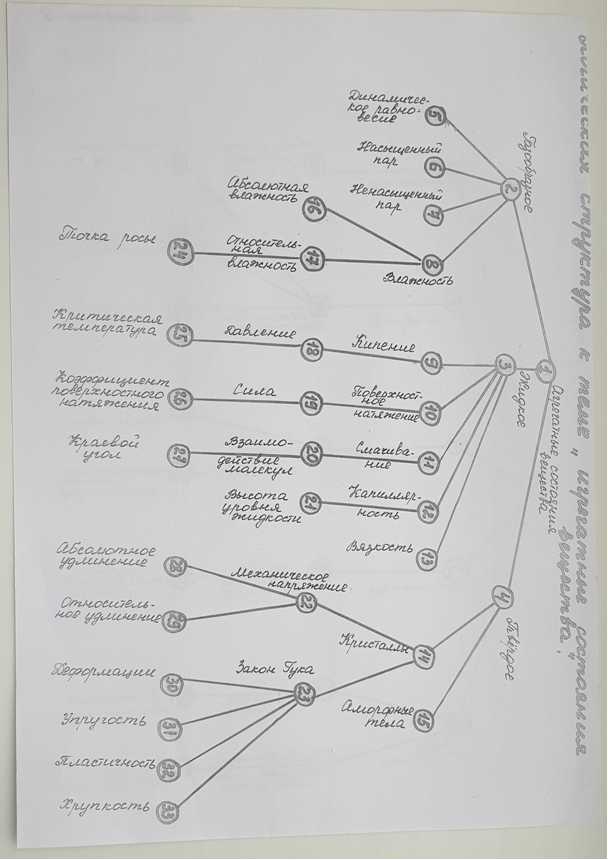 структура к теме „ Агрегатные состояния
вещества".
1
Агрегатные состояния
вещества
2
Газообразное
3
Жидкое
4
Твёрдое
5
Динамичес-
кое равно-
весие
6
Насыщенный
пар
7
Ненасыщенный
пар
8
Влажность
9
Кипение
10
Поверхност-
ное
натяжение
11
Смачива-
ние
12
Капилляр-
ность
13
Вязкость
14
Кристаллы
15
Аморфные
тела
16
Абсолютная
влажность
17
Относитель-
ная
влажность
18
Давление
19
Сила
20
Взаимо-
действие
молекул
21
Высота
уровня
жидкости
22
Механическое
напряжение
23
Закон Гука
24
Точка росы
25
Критическая
температура
26
Коэффициент
поверхностного
натяжения
27
Краевой
угол
28
Абсолютное
удлинение
29
Относитель-
ное удлинение
30
Деформации
31
Упругость
32
Пластичность
33
Хрупкость